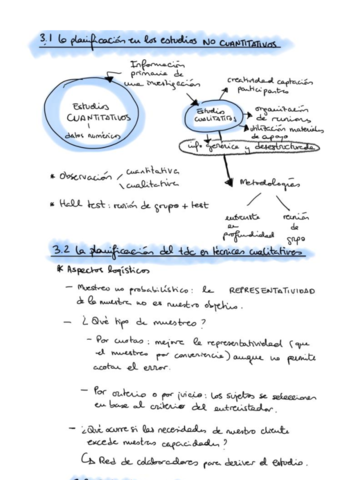 3.1 la planificación en los estudios NO CUANTITATIVOS
Información
primaria de
una investigación
Estudios
CUANTITATIVOS
datos numéricos
Estudios
CUALITATIVOS
creatividad captación
participantes
organización
de reunions
utilización materiales
de apoyo
info genérica y desestructurada
Metodologías
entrevista
en
profundidad
reunión
de
grupo
* Observación / cuantitativa
\ cualitativa
* Hall test: reunión de grupo + test
3.2 la planificación del tdc en técnicas cualitativas
* Aspectos logísticos
— Muestreo no probabilístico: la REPRESENTATIVIDAD
de la muestra no es nuestro objetivo.
— ¿Qué tipo de muestreo?
— Por cuotas: mejora la representatividad (que
el muestreo por conveniencia) aunque no permite
acotar el error.
— Por criterio o por juicio: los sujetos se seleccionen
en base al criterio del entrevistador.
— ¿Qué ocurre si las necesidades de nuestro cliente
excede nuestras capacidades?
↳ Red de colaboradores para derivar el estudio.